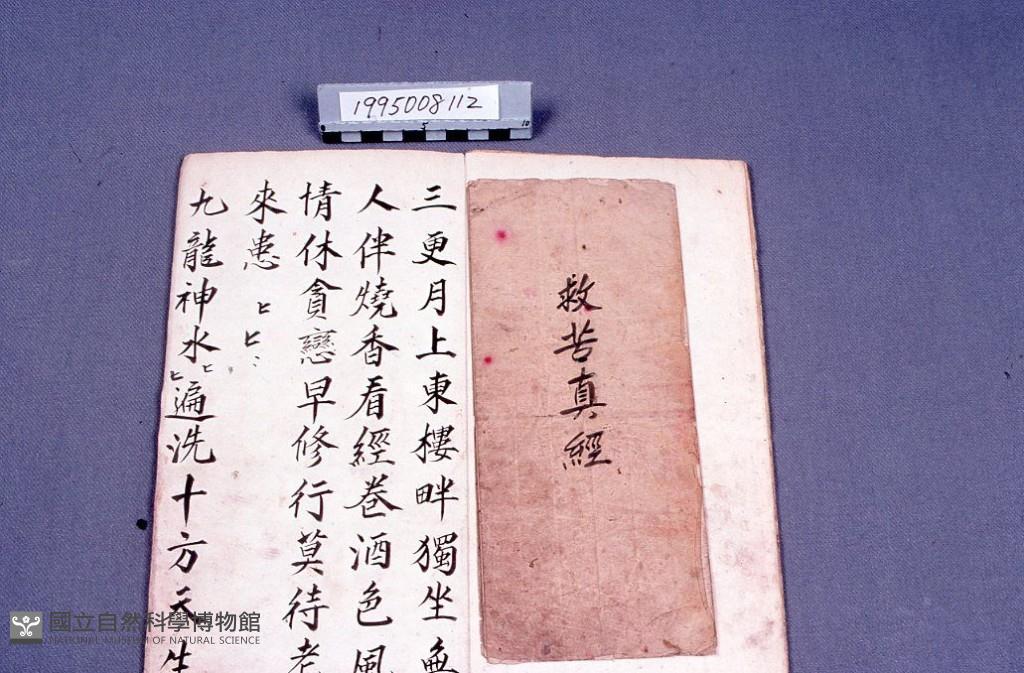 1995008112
5
10
救苦真經
三更月上東樓畔獨坐無
人伴燒香看經卷酒色風
情休貪戀早修行莫待老
來患〻〻
九龍神水〻〻遍洗十方天生
國立自然科學博物館
NATIONAL MUSEUM OF NATURAL SCIENCE